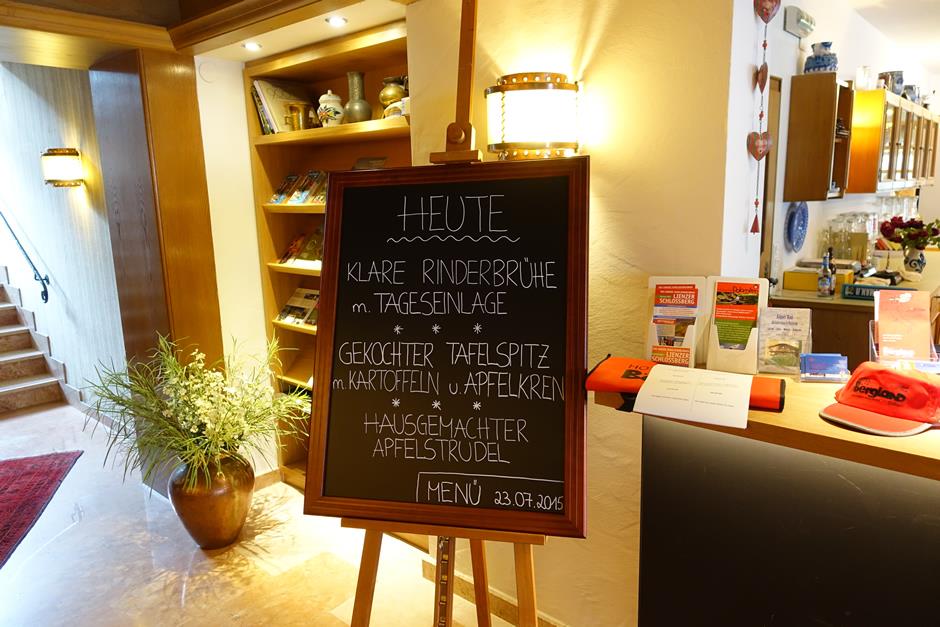 HEUTE
KLARE RINDERBRÜHE
m. TAGESEINLAGE
* * *
GEKOCHTER TAFELSPITZ
m. KARTOFFELN u. APFELKREN
* * *
HAUSGEMACHTER
APFELSTRUDEL
MENÜ 23.07.2015
LIENZER
SCHLOSSBERG
LIENZER
SCHLOSSBERG
bergland